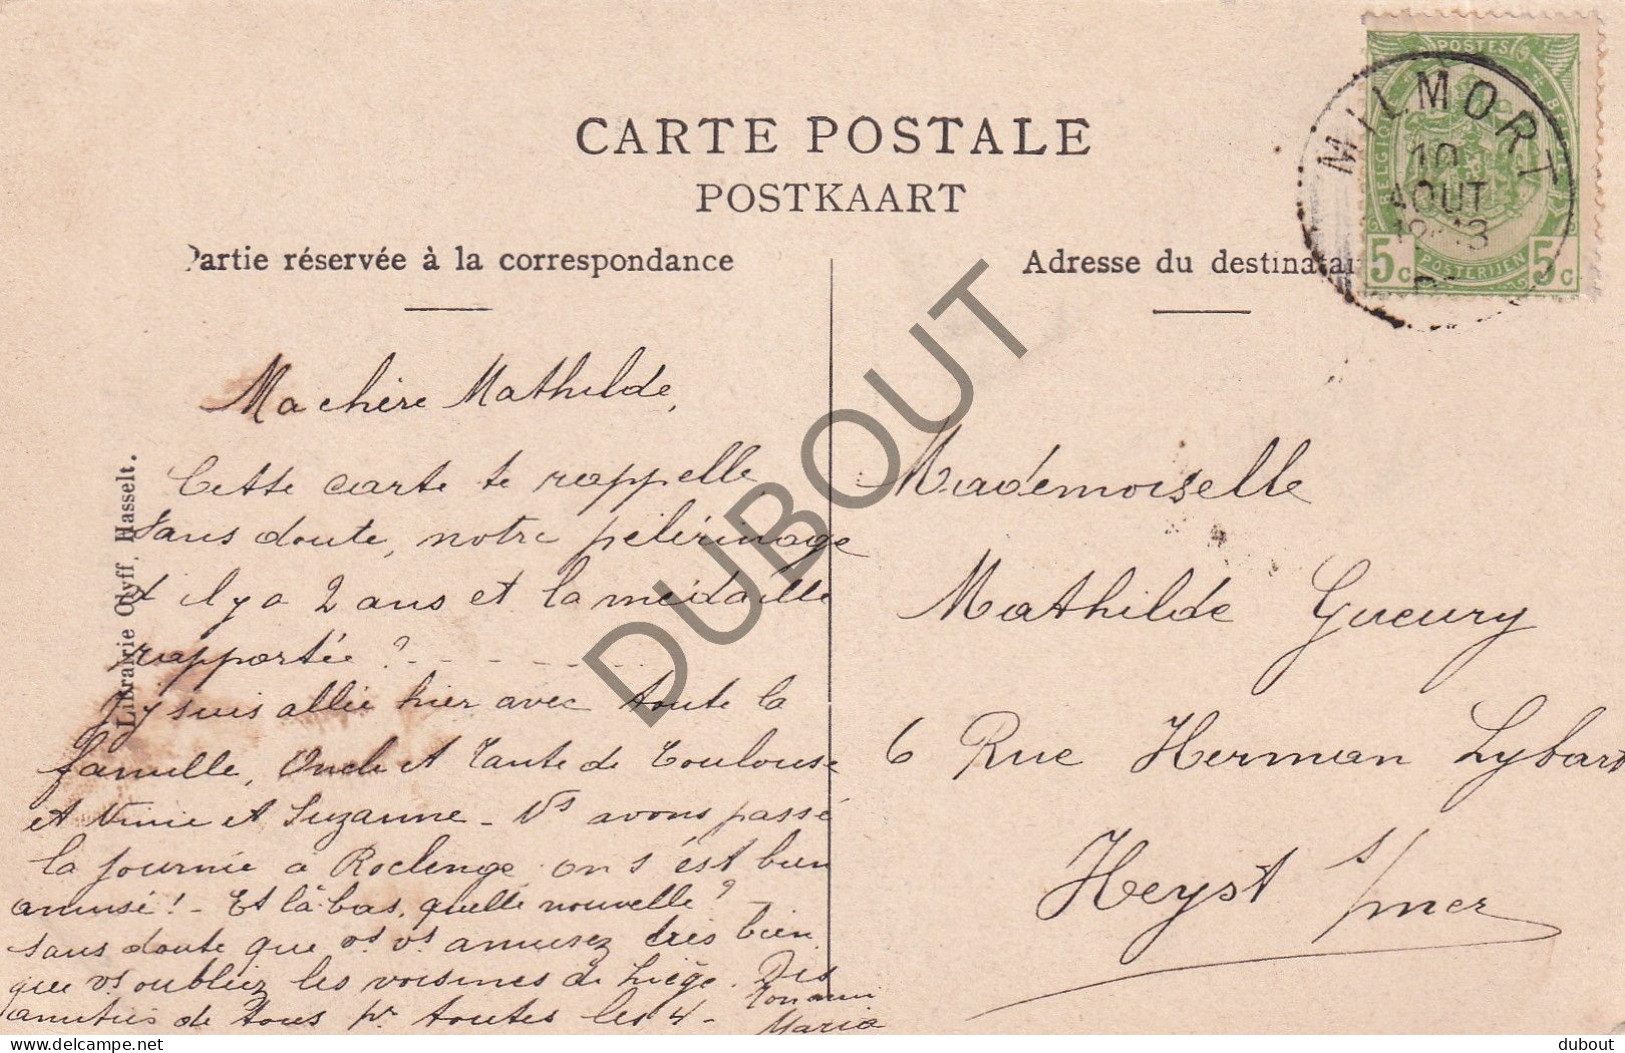 CARTE POSTALE
POSTKAART
Partie réservée à la correspondance
Adresse du destinatai
POSTES
BELGIQUE
POSTERIJEN
5c 5c
MILMORT
10
AOUT
13
Librairie Olyff, Hasselt.
Ma chère Mathilde,
Cette carte te rappelle
sans doute, notre pélérinage
d'il y a 2 ans et la médaille
rapportée ?
J'y suis allée hier avec toute la
famille, Oncle et Tante de Toulouse
et Ninie et Suzanne - Ns avons passé
la journée à Roclenge on s'est bien
amusé ! - Et là-bas, quelle nouvelle ?
sans doute que vs vs amusez très bien
que vs oubliez les voisines de Liège. Des
amitiés de tous pr toutes les 4 -
Maria
Mademoiselle
Mathilde Gueury
6 Rue Herman Lybart
Heyst s/mer
DUBOUT
dubout
delcampe.net